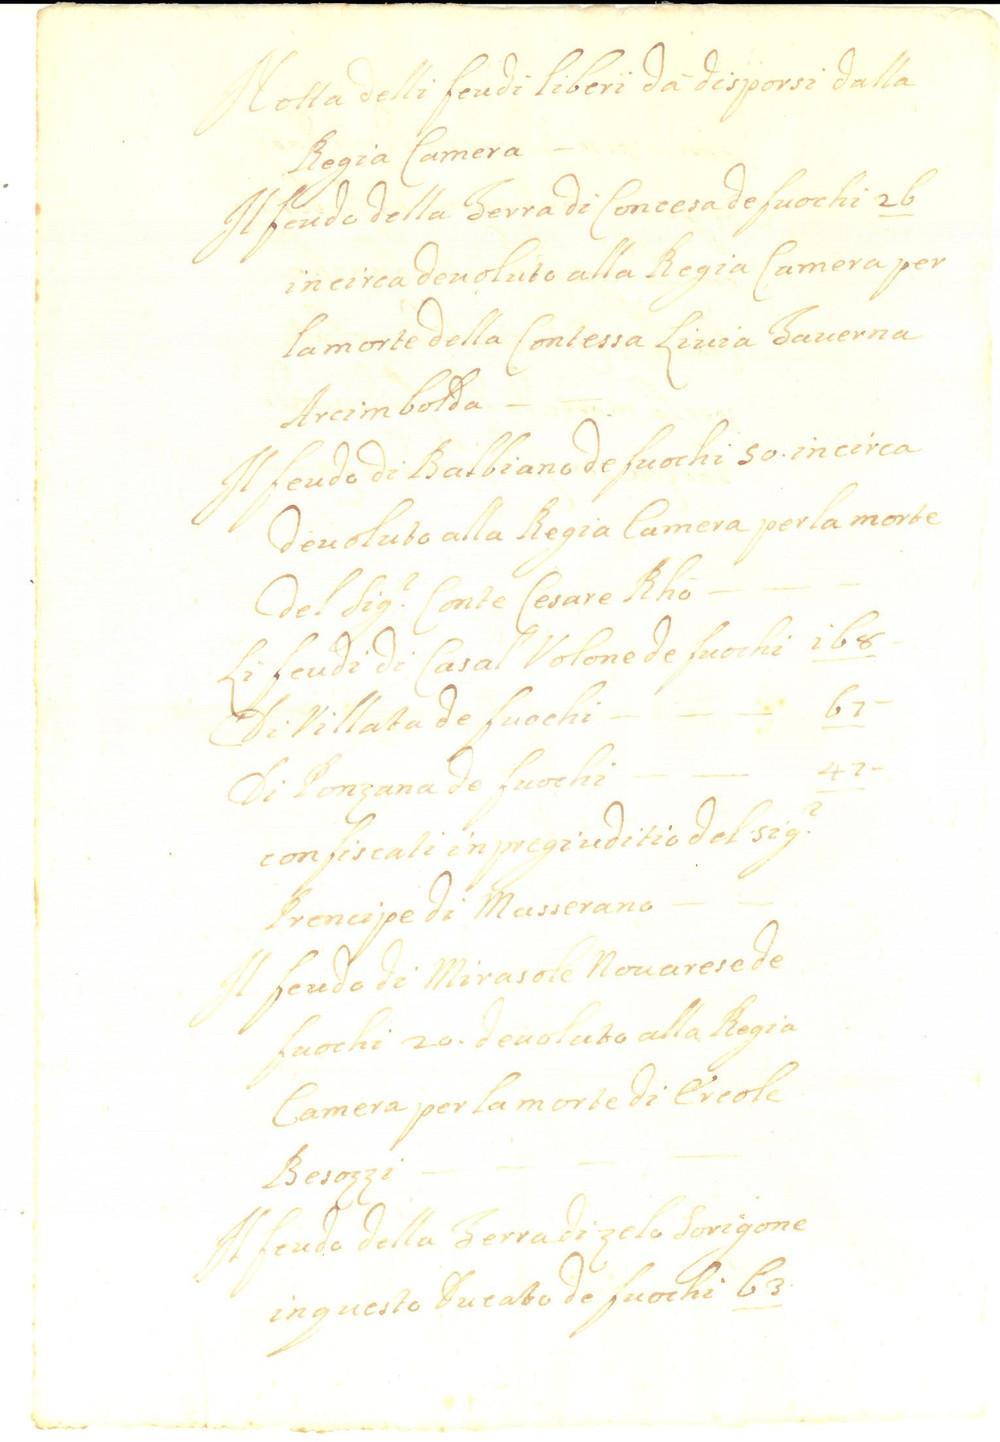 Notta delli feudi liberi da disporsi dalla
Regia Camera —
Il feudo della Terra di Concesa de fuochi 26
in circa devoluto alla Regia Camera per
la morte della Contessa Liuia Tauerna
Arcimbolda — —
Il feudo di Balbiano de fuochi 50. in circa
deuoluto alla Regia Camera per la morte
del Sig.r Conte Cesare Rhò — — —
Li feudi di Casal Volone de fuochi 168 -
Di Villata de fuochi — — — 67 -
Di Ponzana de fuochi — — 47 -
confiscati in pregiuditio del sig.r
Prencipe di Masserano — —
Il feudo di Mirasole Nouarese de
fuochi 20. deuoluto alla Regia
Camera per la morte di Ercole
Besozzi — — — —
Il feudo della Terra di zelo Sorigone
in questo Ducato de fuochi 63